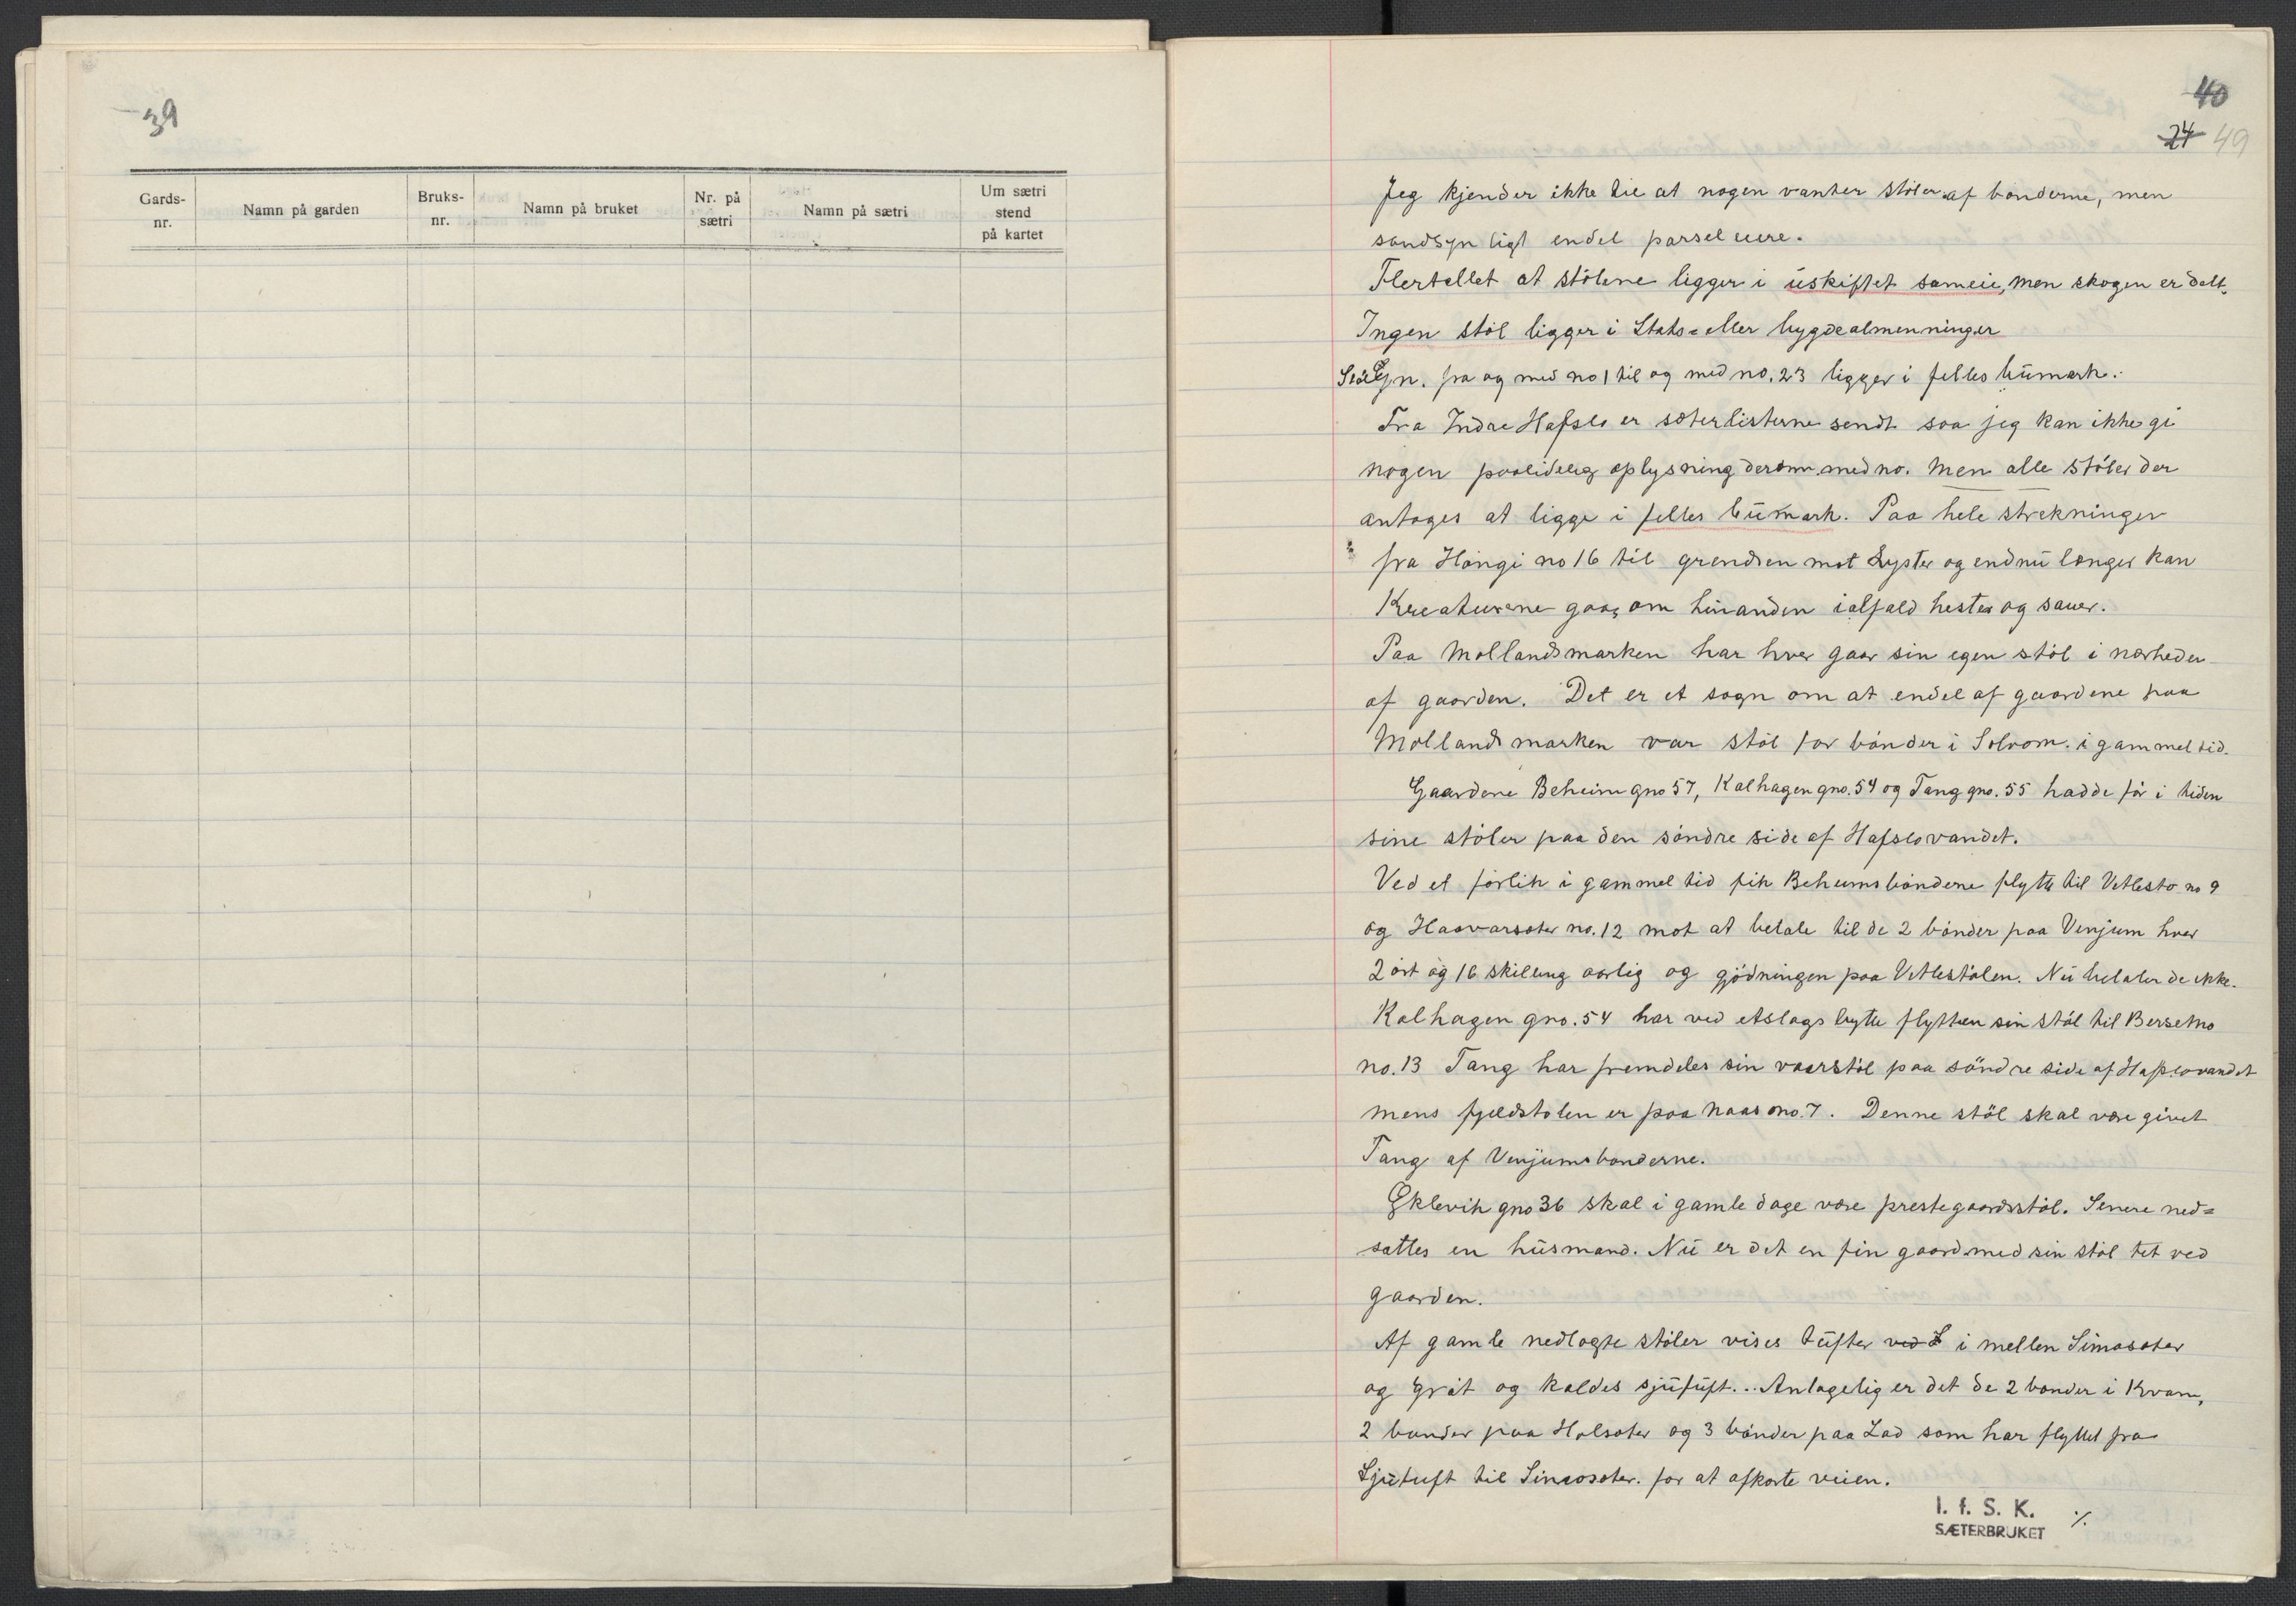 39
Gards-
nr.
Namn på garden
Bruks-
nr.
Namn på bruket
Nr. på
sætri
Namn på sætri
Um sætri
stend
på kartet
40
24 49
Jeg kjender ikke til at nogen vanter støler af bønderne, men
sandsynligt endel parseleiere.
Flertallet at stølene ligger i uskiftet sameie, men skogen er delt.
Ingen støl ligger i Stats- eller bygdealmenninger
fra og med no 1 til og med no. 23 ligger i felles bumark.
Fra Indre Hafslo er sæterlisterne sendt saa jeg kan ikke gi
nogen paalidelig oplysning derom med no. Men alle støler der
antages at ligge i felles bumark. Paa hele strekningen
fra Høngi no 16 til grendsen mot Lyster og endnu længer kan
Kreaturene gaa om hinanden ialfald hester og sauer.
Paa Mollandsmarken har hver gaar sin egen støl i nærheden
af gaarden. Det er et sagn om at endel af gaardene paa
Mollandsmarken var støl for bønder i Solvorn i gammel tid.
Gaardene Beheim gno 57, Kalhagen gno. 54 og Tang gno. 55 hadde før i tiden
sine støler paa den søndre side af Hafslovandet.
Ved et forlik i gammel tid fik Beheimsbøndene flytte til Vetlestø no 9
og Haavarsæter no. 12 mot at betale til de 2 bønder paa Venjum hver
2 ort og 16 skilling aarlig og gjødningen paa Vetlestølen. Nu betaler de ikke.
Kalhagen gno. 54 har ved etslags bytte flytten sin støl til Bersemo
no. 13 Tang har fremdeles sin vaarstøl paa søndre side af Hafslovandet
mens fjeldstølen er paa Naas no. 7. Denne støl skal være givet
Tang af Venjumsbønderne.
Eklevik gno 36 skal i gamle dage være prestegaardsstøl. Senere ned-
sattes en husmand. Nu er det en fin gaard med sin støl tet ved
gaarden.
Af gamle nedlagte støler vises tufter ved L i mellen Simosæter
og Grøt og kaldes sjutuft... Antagelig er det de 2 bønder i Kvam,
2 bønder paa Holsæter og 3 bønder paa Lad som har flyttet fra
Sjutuft til Simosæter. for at afkorte veien.
I. f. S. K.
SÆTERBRUKET
./.